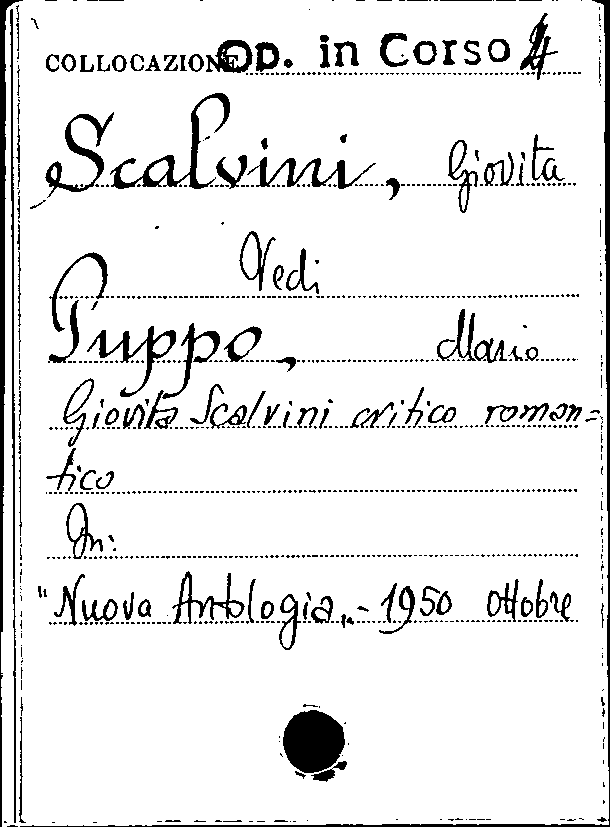 COLLOCAZIONE Op. in Corso 24
Scalvini, Giovita
Vedi
Puppo, Mario
Giovita Scalvini critico roman=
tico
In:
"Nuova Antologia„- 1950 ottobre